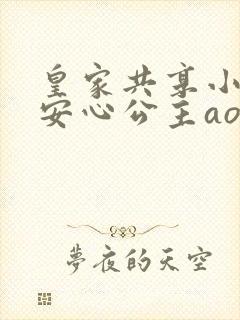 皇家共享小
安心公主ao
夢夜的天空